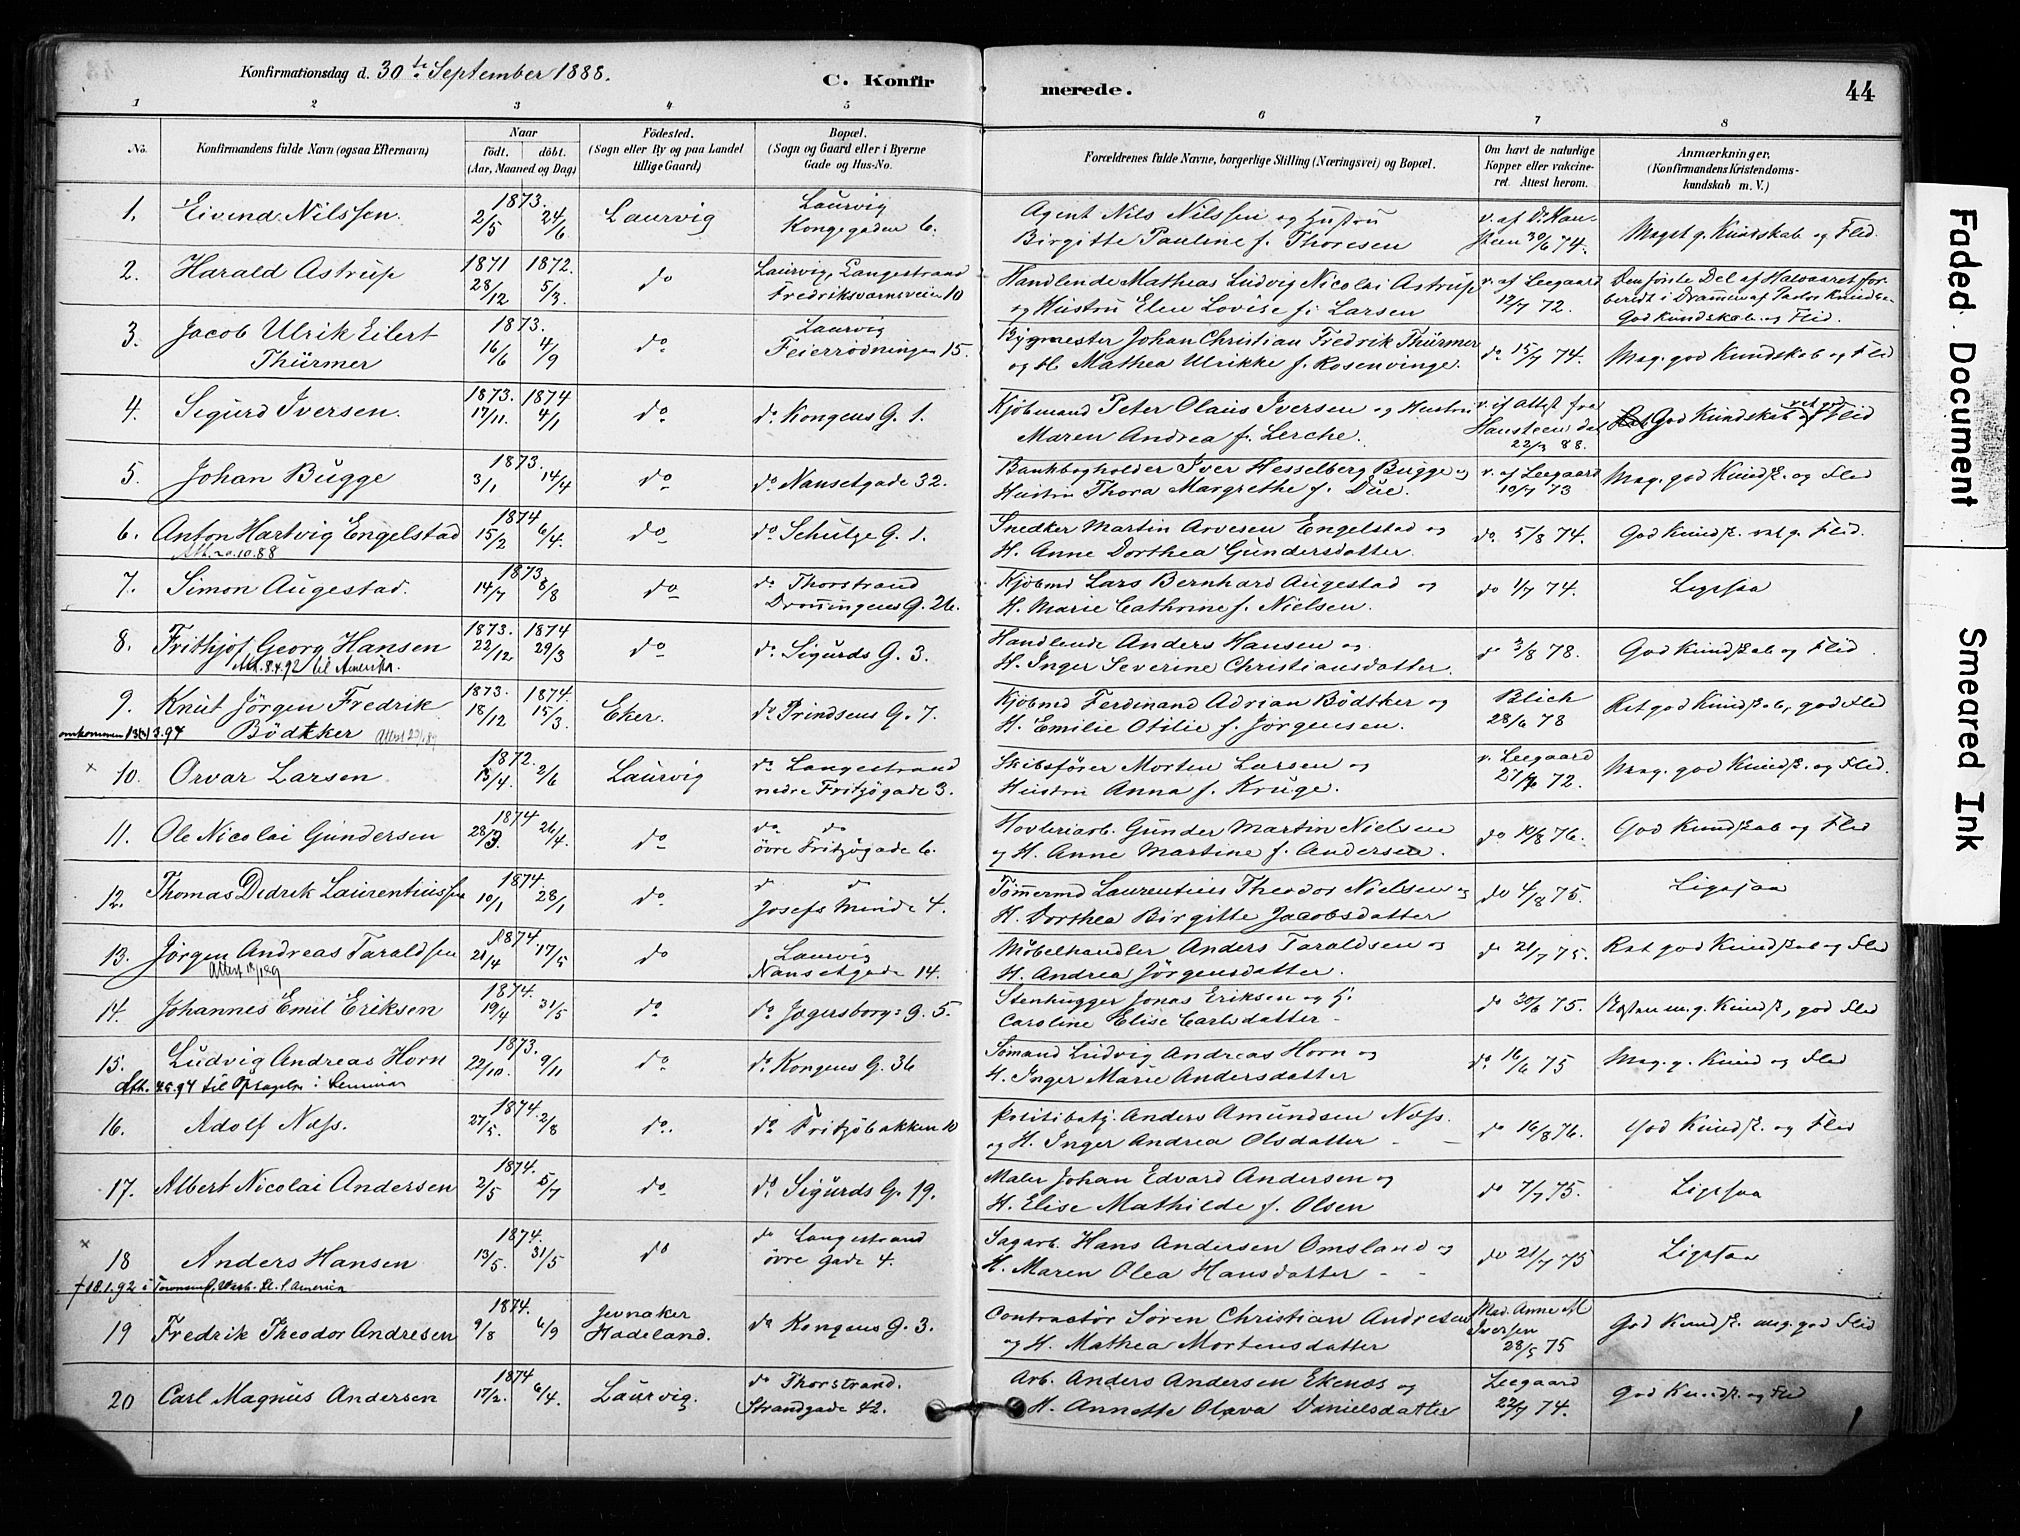 Konfirmationsdag d. 30te September 1888.
C. Konfirmerede.
44
1 2 3 4 5 6 7 8
No.
Konfirmandens fulde Navn (ogsaa Efternavn)
Naar
födt. döbt.
(Aar, Maaned og Dag)
Födested.
(Sogn eller By og paa Landet
tillige Gaard)
Bopæl.
(Sogn og Gaard eller i Byerne
Gade og Hus-No.
Forældrenes fulde Navne, borgerlige Stilling (Næringsvei) og Bopæl.
Om havt de naturlige
Kopper eller vakcine-
ret. Attest herom.
Anmærkninger,
(Konfirmandens Kristendoms-
kundskab m. V.)
1. Eivind Nilssen. 1873. 2/5 24/6 Laurvig Laurvig
Kongegaden 6.
Agent Nils Nilssen og Hustru
Birgitte Pauline f. Thoresen
30/6 74.
Meget g. Kundskab og Flid.
2. Harald Astrup 1871 28/12 1872. 5/3 do Laurvig, Langestrand
Fredriksværnsveien 10
Handlende Mathias Ludvig Nicolai Astrup
og Hustru Elen Lovise f. Larsen
v. af Leegaard
12/7 72.
Den første Del af Halvaaret for-
beredt i Drammen af Pastor
God Kundskab og Flid.
3. Jacob Ulrik Eilert
Thürmer
1873. 16/6 4/9 do Laurvig
Feierrødningen 15.
Bygmester Johan Christian Fredrik Thürmer
og H. Mathea Ulrikke f. Rosenvinge.
do 15/7 74.
Meg. god Kundskab og Flid
4. Sigurd Iversen. 1873. 17/11. 1874 4/1 do do Kongens G. 1.
Kjøbmand Peter Olaus Iversen og Hustru
Maren Andrea f. Lerche.
v. if Attest fra
Hansteen dat
22/3 88.
God Kundskab og Flid
5. Johan Bugge 1873. 3/1 14/4 do do Nansetgade 32.
Bankbogholder Iver Hesselberg Bugge og
Hustru Thora Margrethe f. Due.
v. af Leegaard
10/7 73
Meg. god Kundsk. og Flid
6. Anton Hartvig Engelstad 1874. 15/2 6/4. do do Schultze G. 1.
Att. 20.10.88
Snedker Martin Arvesen Engelstad og
H. Anne Dorthea Gundersdatter.
do 5/8 74.
God Kundsk. ret g. Flid.
7. Simon Augestad. 1873 14/7 8/8 do do Thorstrand
Dronningens G. 26.
Kjøbmd Lars Bernhard Augestad og
H. Marie Cathrine f. Nielsen.
do 1/7 74.
Ligesaa
8. Frithjof Georg Hansen 1873. 22/12 1874 29/3 do do Sigurds G. 3.
Att. 8.4.92 til Amerika.
Handlende Anders Hansen og
H. Inger Severine Christiansdatter.
do 3/8 78.
God Kundskab og Flid.
9. Knut Jörgen Fredrik
Bödtker
1873. 18/12 1874. 15/3. Eker. do Prindsens G. 7.
omkommen
Kjøbmd Ferdinand Adrian Bödtker og
H. Emilie Otilie f. Jörgensen.
Blich
28/6 78
Ret god Kundskab, god Flid
10. Orvar Larsen 1872. 13/4. 2/6 Laurvig do Langestrand
nedre Fritzögade 3.
Skibsfører Morten Larsen og
Hustru Anna f. Kruge.
v. Leegaard
72.
Meg. god Kundsk. og Flid.
11. Ole Nicolai Gundersen 1874 28/3 26/4. do do do
övre Fritzögade 6.
Hovleriarb. Gunder Martin Nielsen
og H. Anne Martine f. Andersen.
do 10/8 76.
God Kundskab og Flid
12. Thomas Didrik Laurentiussen 1874. 10/1 28/1 do do do
Josefs Minde 4.
Tömmermd Laurentius Theodor Nielsen og
H. Dorthea Birgitte Jacobsdatter
do 4/8 75.
Ligesaa
13. Jörgen Andreas Taraldsen 1874. 21/4 17/5 do Laurvig
Nansetgade 14.
Møbelhandler Anders Taraldsen og
H. Andrea Jörgensdatter.
do 21/7 75.
Ret god Kundskab og Flid
14. Johannes Emil Eriksen 1874. 19/4 31/5 do do Jegersborgs G. 5.
Stenhugger Jonas Eriksen og H.
Caroline Elise Carlsdatter -
do 30/6 75.
Næsten m. g. Kundsk., god Flid
15. Ludvig Andreas Horn 1873. 22/10. 9/11 do do Kongens G. 36
Att. 4.5.94 til Optagelse i Seminar
Sømand Ludvig Andreas Horn og
H. Inger Marie Andersdatter
do 16/6 75
Meg. g. Kund og Flid
16. Adolf Næss. 1874. 27/5. 2/8 do. do Fritzöbakken 10
Politibetj. Anders Amundsen Næss.
og H. Inger Andrea Olsdatter -
do 16/8 76.
God Kundsk. og Flid
17. Albert Nicolai Andersen 1874. 2/5 5/7 do do Sigurds G. 19.
Maler Johan Edvard Andersen og
H. Elise Mathilde f. Olsen
do 7/7 75.
Ligesaa
18 Anders Hansen 1874. 13/5. 31/5 do do Langestrand
övre Gade 4.
† 18.1.92 i
Sagarb. Hans Andersen Omsland og
H. Maren Olea Hansdatter - -
do 21/7 75
Ligesaa
19 Fredrik Theodor Andresen 1874. 9/8 6/9 Jevnaker
Hadeland. do Kongens G. 3.
Contractör Sören Christian Andresen
og H. Mathea Mortensdatter
Mad. Anne M
Iversen
28/5 75
God Kundsk. meg. god Flid
20 Carl Magnus Andersen 1874 17/2. 6/4. Laurvig. do Thorstrand.
Strandgade 42.
Arb. Anders Andersen Ekenes og
H. Annette Olava Danielsdatter
Leegaard
22/7 74.
God Kundsk. og Flid
Faded Document
Smeared Ink